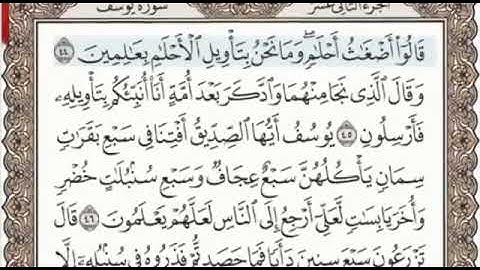 سورة يوسف الجزء الثاني عشر
قَالُوٓا۟ أَضْغَٰثُ أَحْلَٰمٍ ۖ وَمَا نَحْنُ بِتَأْوِيلِ ٱلْأَحْلَٰمِ بِعَٰلِمِينَ ٤٤
وَقَالَ ٱلَّذِى نَجَا مِنْهُمَا وَٱدَّكَرَ بَعْدَ أُمَّةٍ أَنَا۠ أُنَبِّئُكُم بِتَأْوِيلِهِۦ
فَأَرْسِلُونِ ٤٥ يُوسُفُ أَيُّهَا ٱلصِّدِّيقُ أَفْتِنَا فِى سَبْعِ بَقَرَٰتٍ
سِمَانٍ يَأْكُلُهُنَّ سَبْعٌ عِجَافٌ وَسَبْعِ سُنۢبُلَٰتٍ خُضْرٍ
وَأُخَرَ يَابِسَٰتٍ لَّعَلِّىٓ أَرْجِعُ إِلَى ٱلنَّاسِ لَعَلَّهُمْ يَعْلَمُونَ ٤٦ قَالَ
تَزْرَعُونَ سَبْعَ سِنِينَ دَأَبًا فَمَا حَصَدتُّمْ فَذَرُوهُ فِى سُنۢبُلِهِۦٓ إِلَّا